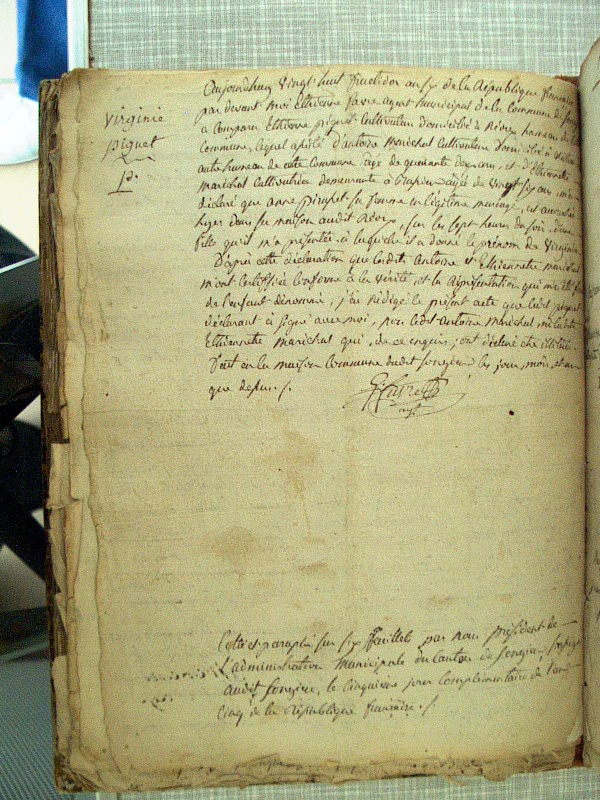 Virginie
piguet
Aujourdhuy Vingt huit fructidor an six de la République francaise
par devant moi Ethienne favre agent municipal de la Commune de
a Comparu Ethienne piguet Cultivateur domicilié à hameau de
Commune, lequel assisté d'antoine Maréchal Cultivateur domicilié à
autre hameau de cette Commune, agé de quarante deux ans, et d'Ethiennette
maréchal Cultivatrice demeurante à agée de Vingt six ans, m'a
déclaré que anne sa femme en légitime mariage, est accouchée
dans sa maison audit sur les sept heures du soir, d'une
fille qu'il m'a présentée à laquelle il a donné le prénom de Virginie
D'après cette déclaration que lesdits Antoine et Ethiennette maréchal
m'ont Certiffiée Conforme à la vérité et la Représentation qui m'a été
de l'enfant dénommé, j'ai Rédigé le présent acte que ledit piguet
déclarant à signé avec moi, non ledit Antoine maréchal ni ladite
Ethiennette maréchal qui, de ce enquis, ont déclaré être illitérés
Fait en la maison Commune dudit Songieu les jour, mois, et an
que dessus ./.
agt
Cotté et paraphé sur six feuillets par nous président de
l'administration municipale du Canton de Songieu,
audit Songieu, le Cinquième jour Complémentaire de l'an
Cinq de la République francaise ./.